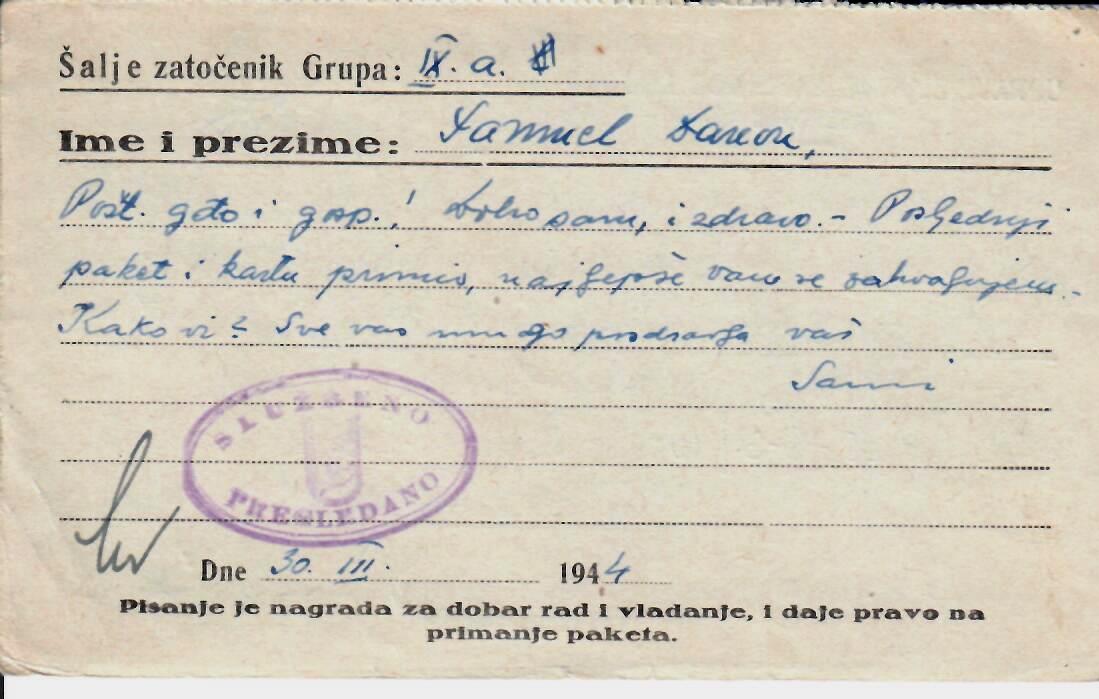 Šalje zatočenik Grupa: IX. a.
Ime i prezime: Samuel
Pošt. gđo i gosp.! Dobro sam, i zdravo. - Posljednji
paket i kartu primio, najljepše vam se zahvaljujem. -
Kako vi? Sve vas mnogo pozdravlja vaš
Sami
SLUŽBENO
PREGLEDANO
Dne 30. III. 1944
Pisanje je nagrada za dobar rad i vladanje, i daje pravo na
primanje paketa.